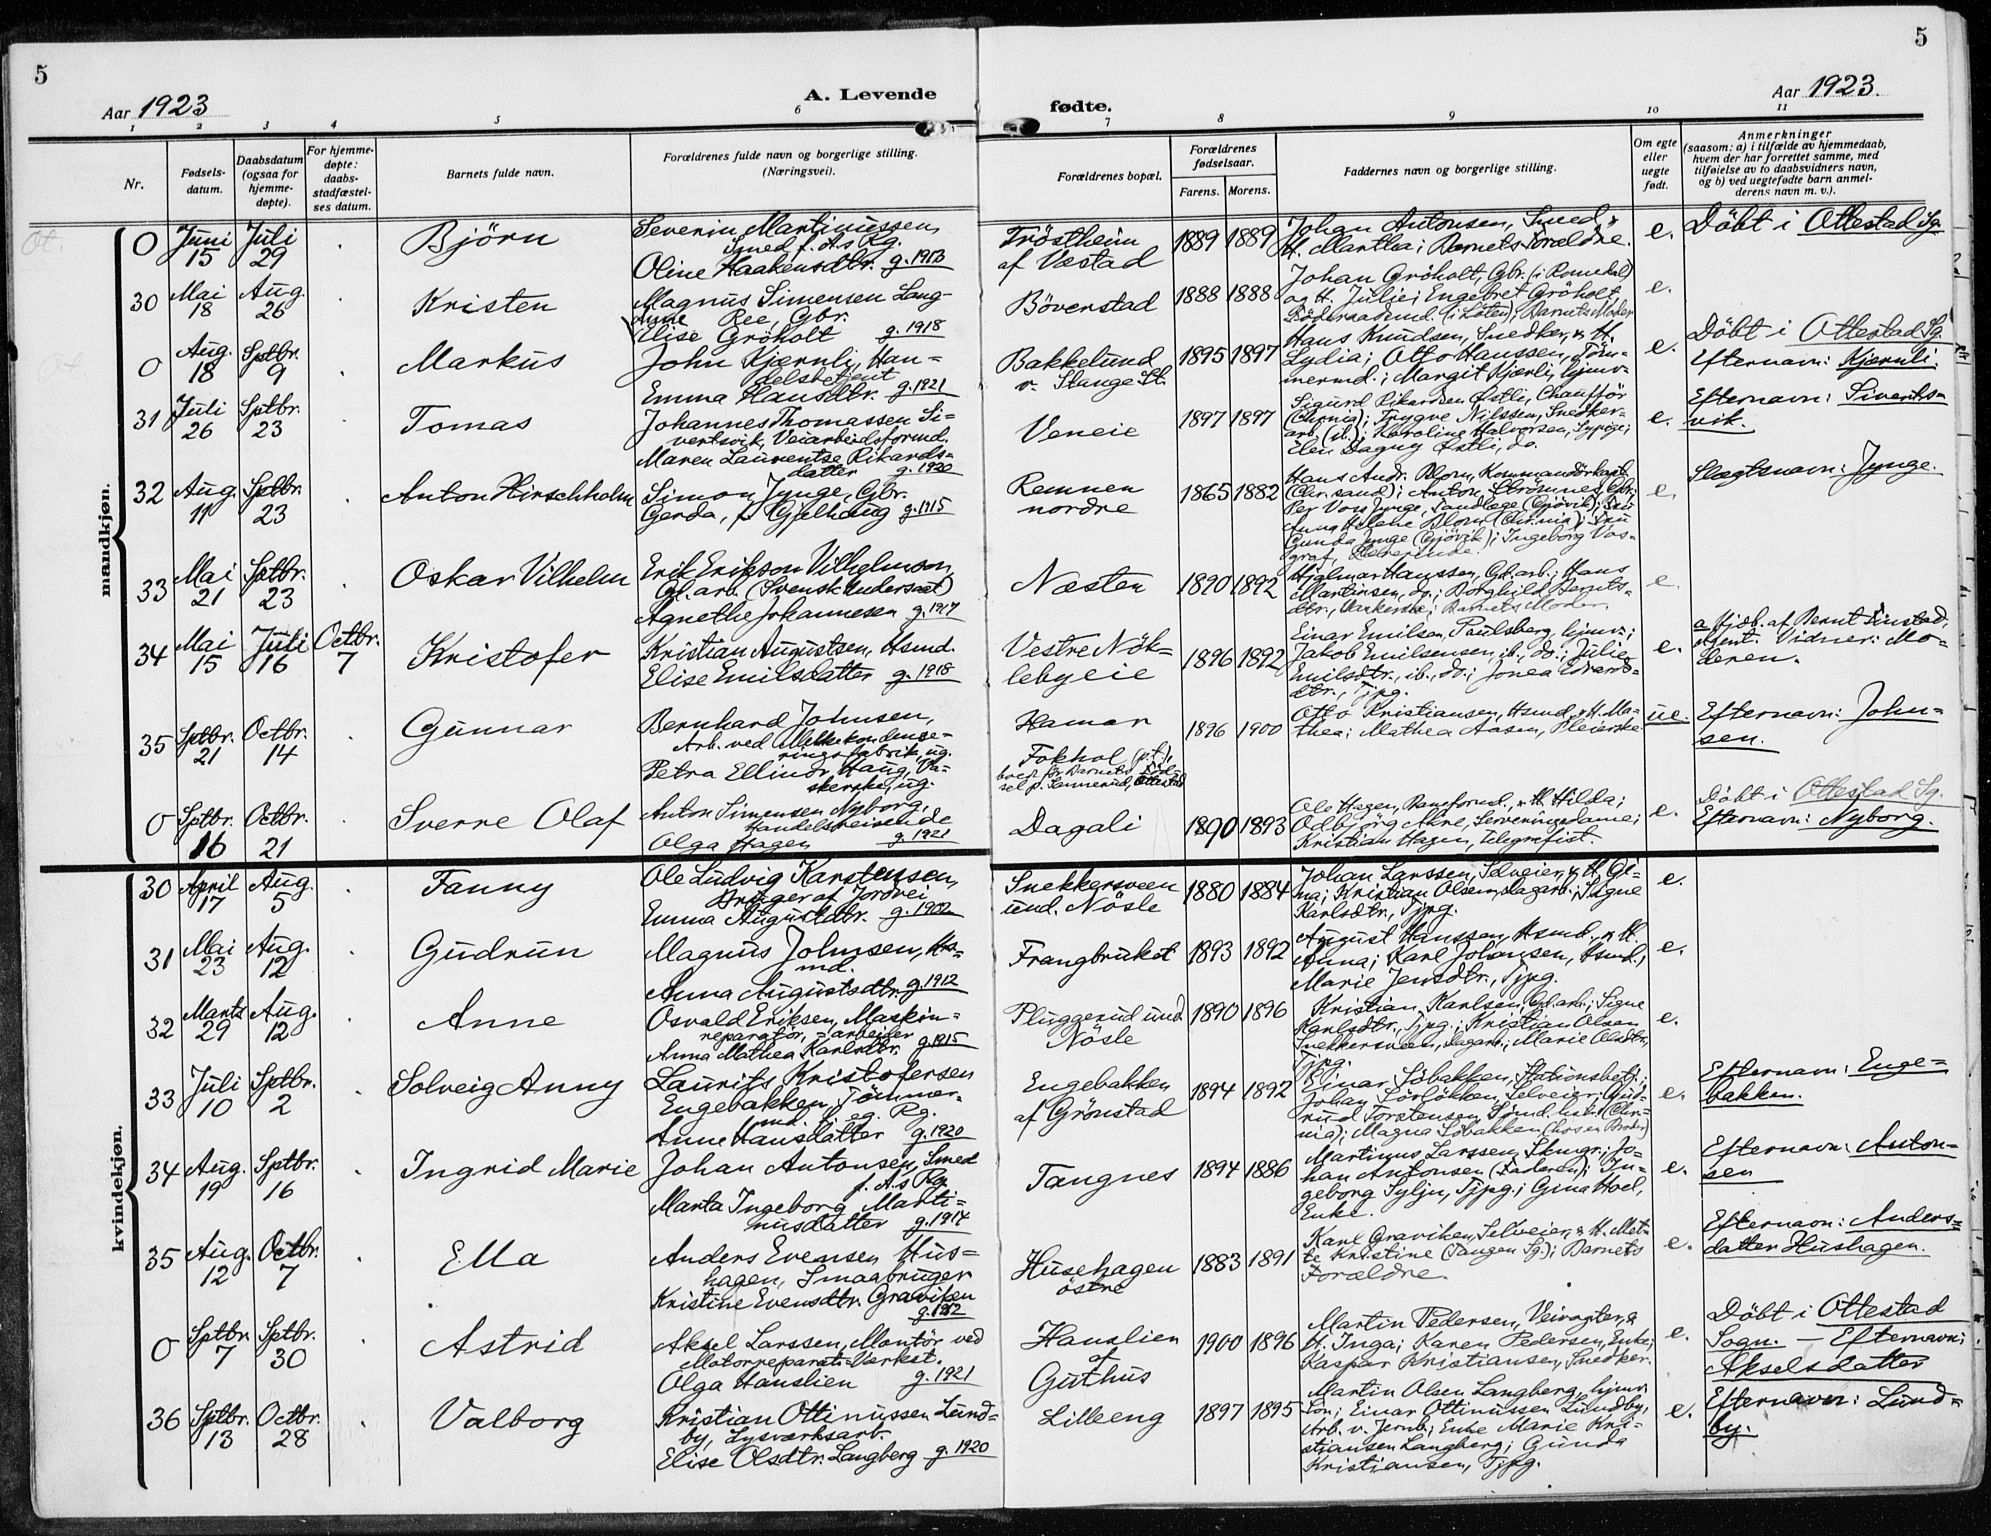 5
5
Aar 1923
A. Levende
fødte.
Aar 1923.
1 2 3 4 5 6 7 8 9 10 11
Nr.
Fødsels-
datum.
Daabsdatum
(ogsaa for
hjemme-
døpte).
For hjemme-
døpte:
daabs-
stadfæstel-
ses datum.
Barnets fulde navn.
Forældrenes fulde navn og borgerlige stilling.
(Næringsvei).
Forældrenes bopæl.
Forældrenes
fødselsaar.
Farens. Morens.
Faddernes navn og borgerlige stilling.
Om egte
eller
uegte
født.
Anmerkninger
(saasom: a) i tilfælde av hjemmedaab,
hvem der har forrettet samme, med
tilføielse av to daabsvidners navn,
og b) ved uegtefødte barn anmel-
derens navn m. v.).
mandkjøn.
Ot.
0 Juni 15 Juli 29 Björn
Severin Martinussen,
Smed f. A.s Rg.
Oline Haakensdtr. g. 1913
Tröstheim
af Væstad
1889 1889
Johan Antonsen, Smed &
H. Martha; Barnets Forældre.
e.
Döbt i Ottestad Sg.
30 Mai 18 Aug. 26 Kristen
Magnus Simensen Lang-
Ree, Gbr.
Anne
Elise Gröholt g. 1918
Böverstad
1888 1888
Johan Gröholt, Gbr. (i Romedal)
og H. Julie; Engebret Gröholt
(i Löten); Barnets Moder
e.
0 Aug. 18 Sptbr. 9 Markus
John Kjærnli, Han-
delsbetjent
Emma Hansdtr. g. 1921
Bakkelund
v. Stange St.
1895 1897
Hans Knudsen, Snedker, & H.
Lydia; Otto Hanssen, Töm-
mermd.; Margit Kjærnli, hjmv.
e.
Döbt i Ottestad Sg.
Efternavn: Kjærnli.
31 Juli 26 Sptbr. 23 Tomas
Johannes Thomassen Si-
vertsvik, Veiarbeidsformd.
Maren Laurentse Rikards-
datter g. 1920
Veneie
1897 1897
Sigurd Rikardsen Östli, Chaufför
(Chr.nia); Trygve Nilssen, Snedker-
arb. (ib.); Karoline Halvorsen, Sypige;
Elen Dagny Östli, do.
e.
Efternavn: Siverts-
vik.
32 Aug. 11 Sptbr. 23 Anton Hirschholm
Simon Jynge, Gbr.
Gerda, f. Gjelhaug g. 1915
Remmen
nordre
1865 1882
Hans Andr. Blom, Kommandörkapt.
(Chr.sand); Anton Strömnes, Gbr.;
Per Voss Jynge, Tandlæge (Gjövik); Fru
Anna Helene Blom (Chr.nia); Fru
Gunda Jynge (Gjövik); Ingeborg Vos-
graf,
e.
Slægtsnavn: Jynge.
33 Mai 21 Sptbr. 23 Oskar Vilhelm
Erik Erikson Vilhelmson,
Gd.arb. (Svensk Undersaat)
Agnethe Johannesen g. 1917
Næsten
1890 1892
Hjalmar Hanssen, Gd.arb.; Hans
Martinsen, do.; Borghild Bernts-
dtr., Barnets Moder.
e.
34 Mai 15 Juli 16 Octbr. 7 Kristofer
Kristian Augustsen, Hsmd.
Elise Emilsdatter g. 1918
Vestre Nök-
lebyeie
1896 1892
Einar Emilsen, Paulsberg, hjmv.;
Jakob Emilsensen, ib., do.; Julie
Emilsdtr., ib., do.; Jonea Edvards-
dtr., Tjpg.
e.
a Hjdb. af Bernt Finstad,
Vidner: Mo-
deren.
35 Sptbr. 21 Octbr. 14 Gunnar
Bernhard Johnsen,
Arb. ved Melkekondense-
ringsfabrik, ug.
Petra Ellinor Haug, Va-
skerske, ug.
Hamar
Fokhol (p.t.),
1896 1900
Otto Kristiansen, Hsmd., & H. Ma-
thea; Mathea Aasen, Meierske
ue.
Efternavn: John-
sen.
0 Sptbr. 16 Octbr. 21 Sverre Olaf
Anton Simensen Nyborg,
Handelsreisende
Olga Hagen g. 1921
Dagali
1890 1893
Ole Hagen, Baneformd., & H. Hilda;
Odbjörg Alne, Serveringsdame;
Kristian Hagen, Telegrafist.
e.
Döbt i Ottestad Sg.
Efternavn: Nyborg.
kvindekjøn.
30 April 17 Aug. 5 Fanny
Ole Ludvig Karstensen,
Bruger af Jordvei
Emma Augustdtr. g. 1902
Snekkersveen
und. Nösle
1880 1884
Johan Larssen, Selveier, & H. Gi-
na; Kristian Olsen, Dagarb.; Signe
Karlsdtr., Tjpg.
e.
31 Mai 23 Aug. 12 Gudrun
Magnus Johnsen, Hs-
md.
Anna Augustsdtr. g. 1912
Frangbruket
1893 1892
August Hanssen, Hsmd., & H.
Anna; Karl Johansen, Hsmd.;
Marie Jensdtr., Tjpg.
e.
32 Marts 29 Aug. 12 Anne
Osvald Eriksen, Maskin-
reparatör, -arbeider
Anna Mathea Karlsdtr. g. 1915
Pluggerud und
Nösle
1890 1896
Kristian Karlsen, Gd.arb.; Signe
Karlsdtr., Tjpg.; Kristian Olsen
Snekkersveen, Dagarb.; Marie Olsdtr.,
Tjpg.
e.
33 Juli 10 Sptbr. 2 Solveig Anny
Laurits Kristofersen
Engebakken, Tömmer-
md. eg. Rg.
Anne Hansdatter g. 1920
Engebakken
af Grönstad
1894 1892
Einar Söbakken, Stationsbetj.;
Johan Sörlökken, Selveier; Gud-
rund Torstensen, (Chr-
nia); Magna Söbakken (hos en Broder)
e.
Efternavn: Enge-
bakken.
34 Aug. 19 Sptbr. 16 Ingrid Marie
Johan Antonsen, Smed
f. A.s Rg.
Marta Ingeborg Marti-
nusdatter g. 1914
Tangnes
1894 1886
Martinus Larssen, Skmgr.; Jo-
han Antonsen (Faderen); In-
geborg Syljn, Tjpg.; Gina Hoel,
Enke.
e.
Efternavn: Anton-
sen
35 Aug. 12 Octbr. 7 Ella
Anders Evensen Hus-
hagen, Smaabruger
Kristine Evensdtr. Graviken
g. 1912
Husehagen
östre
1883 1891
Karl Graviken, Selveier, & H. Met-
te Kristine (Tangen Sg.); Barnets
Forældre.
e.
Efternavn: Anders-
datter Hushagen.
0 Sptbr. 7 Sptbr. 30 Astrid
Aksel Larssen, Montör ved
Motorreparats-Værkst.
Olga Hanslien g. 1921
Hanslien
af
Guthus
1900 1896
Martin Pedersen, Veivogter, &
H. Inga; Karen Pedersen, Enke;
Kaspar Kristiansen, Snedker.
e.
Döbt i Ottestad
Sogn. — Efternavn:
Akselsdatter
36 Sptbr. 13 Octbr. 28 Valborg
Kristian Ottinussen Lund-
by, Lysværksarb.
Elise Olsdtr. Langberg g. 1920
Lilleeng
1897 1895
Martin Olsen Langberg, hjmv.
Sön; Einar Ottinussen Lundby,
Arb. v. Jernb.; Enke Marie Kri-
stiansen Langberg; Gunda
Kristiansen, Tjpg.
e.
Efternavn: Lund-
by.